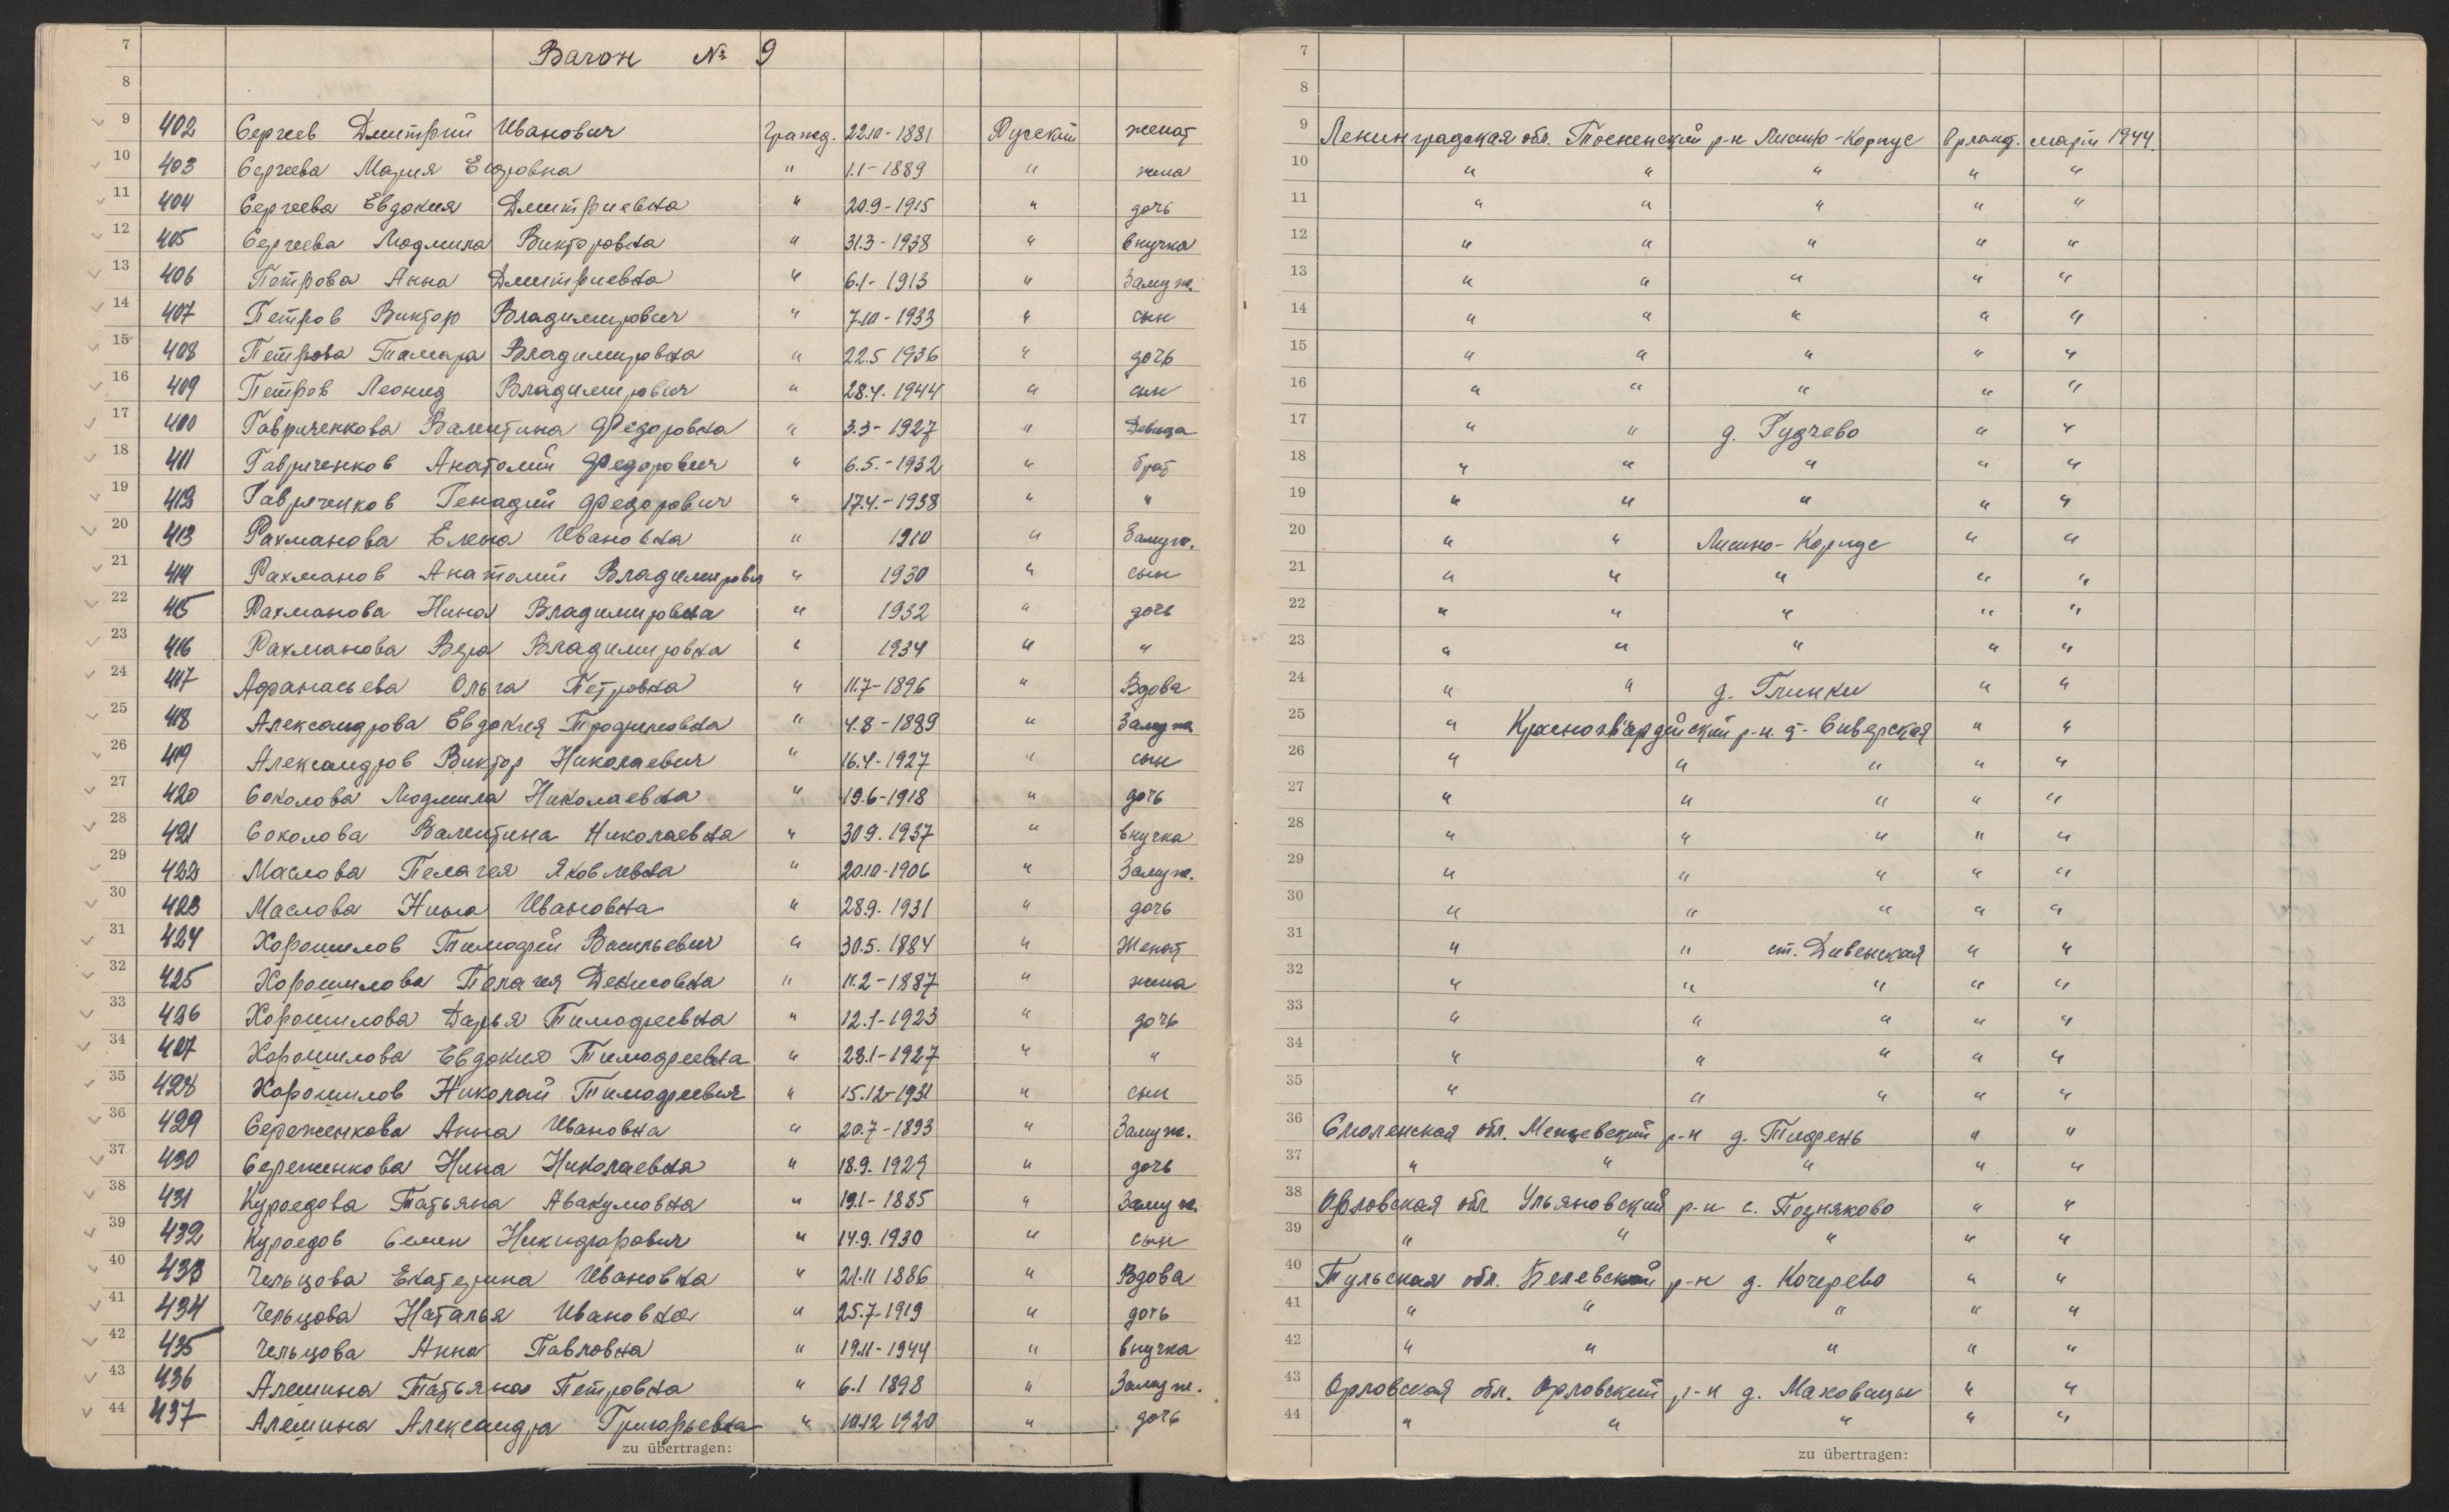 7 Вагон № 9 7
8 8
9 402 Сергеев Дмитрий Иванович Гражд. 22.10-1881 Русский женат 9 Ленинградская обл. Тосненский р-н Лисино-Корпус март 1944
10 403 Сергеева Мария Егоровна " 1.1-1889 " жена 10 " " " " "
11 404 Сергеева Евдокия Дмитриевна " 20.9-1915 " дочь 11 " " " " "
12 405 Сергеева Людмила Викторовна " 31.3-1938 " внучка 12 " " " " "
13 406 Петрова Анна Дмитриевна " 6.1-1913 " Замуж. 13 " " " " "
14 407 Петров Виктор Владимирович " 7.10-1933 " сын 14 " " " " "
15 408 Петрова Тамара Владимировна " 22.5 1936 " дочь 15 " " " " "
16 409 Петров Леонид Владимирович " 28.4.1944 " сын 16 " " " " "
17 410 Гавриченкова Валентина Федоровна " 3.3-1927 " Девица 17 " " д. Гудчево " "
18 411 Гавриченков Анатолий Федорович " 6.5.-1932 " брат 18 " " " " "
19 412 Гавриченков Генадий Федорович " 17.4.-1938 " " 19 " " " " "
20 413 Рахманова Елена Ивановна " 1910 " Замуж. 20 " " Лисино-Корпус " "
21 414 Рахманов Анатолий Владимирович " 1930 " сын 21 " " " " "
22 415 Рахманова Нина Владимировна " 1932 " дочь 22 " " " " "
23 416 Рахманова Вера Владимировна " 1934 " " 23 " " " " "
24 417 Афанасьева Ольга Петровна " 11.7-1896 " Вдова 24 " " д. Глинки " "
25 418 Александрова Евдокия " 4.8-1889 " Замуж 25 " Красногвардейский р-н. Сиверская " "
26 419 Александров Виктор Николаевич " 16.4-1927 " сын 26 " " " " "
27 420 Соколова Людмила Николаевна " 19.6-1918 " дочь 27 " " " " "
28 421 Соколова Валентина Николаевна " 30.9.1937 " внучка 28 " " " " "
29 422 Маслова Пелагея Яковлевна " 20.10-1906 " Замуж. 29 " " " " "
30 423 Маслова Нина Ивановна " 28.9.1931 " дочь 30 " " " " "
31 424 Хорошилов Тимофей Васильевич " 30.5.1884 " Женат 31 " " ст. Дивенская " "
32 425 Хорошилова Пелагея Денисовна " 11.2-1887 " жена 32 " " " " "
33 426 Хорошилова Дарья Тимофеевна " 12.1-1923 " дочь 33 " " " " "
34 427 Хорошилова Евдокия Тимофеевна " 28.1-1927 " " 34 " " " " "
35 428 Хорошилов Николай Тимофеевич " 15.12-1931 " сын 35 " " " " "
36 429 Сереженкова Анна Ивановна " 20.7-1893 " Замуж. 36 Смоленская обл. р-н д. " "
37 430 Сереженкова Нина Николаевна " 18.9.1929 " дочь 37 " " " " "
38 431 Куроедова Татьяна Авакумовна " 19.1-1885 " Замуж. 38 Орловская обл Ульяновский р-н с. Поздняково " "
39 432 Куроедов Семен Никифорович " 14.9.1930 " сын 39 " " " " "
40 433 Чельцова Екатерина Ивановна " 21.11 1886 " Вдова 40 Тульская обл. Белевский р-н д. Кочерево " "
41 434 Чельцова Наталья Ивановна " 25.7-1919 " дочь 41 " " " " "
42 435 Чельцова Анна Павловна " 19.11-1944 " внучка 42 " " " " "
43 436 Алешина Татьяна Петровна " 6.1 1898 " Замуж. 43 Орловская обл. Орловский р-н д. " "
44 437 Алешина Александра Григорьевна " 10.12 1920 " дочь 44 " " " " "
zu übertragen: zu übertragen: